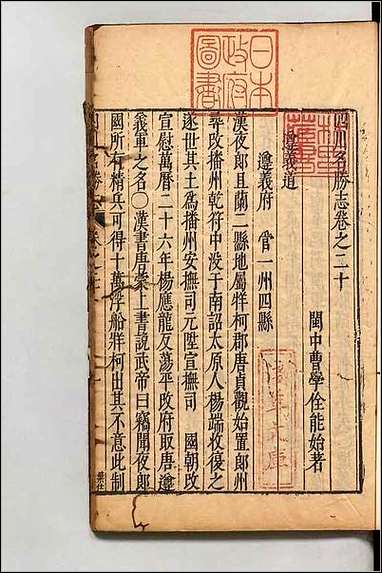 四川名勝志卷之二十
閩中曹學佺能始著
遵義道
遵義府 官一州四縣
漢夜郎且蘭二縣地屬牂柯郡唐貞觀始置郎州
尋改播州乾符中没于南詔太原人楊端收復之
遂世其土爲播州安撫司元陞宣撫司 國朝改
宣慰萬曆二十六年楊應龍反蕩平改府取唐遵
義軍之名○漢書唐蒙上書說武帝曰竊聞夜郎
國所有精兵可得十萬浮船牂柯出其不意此制
日本
政府
圖書